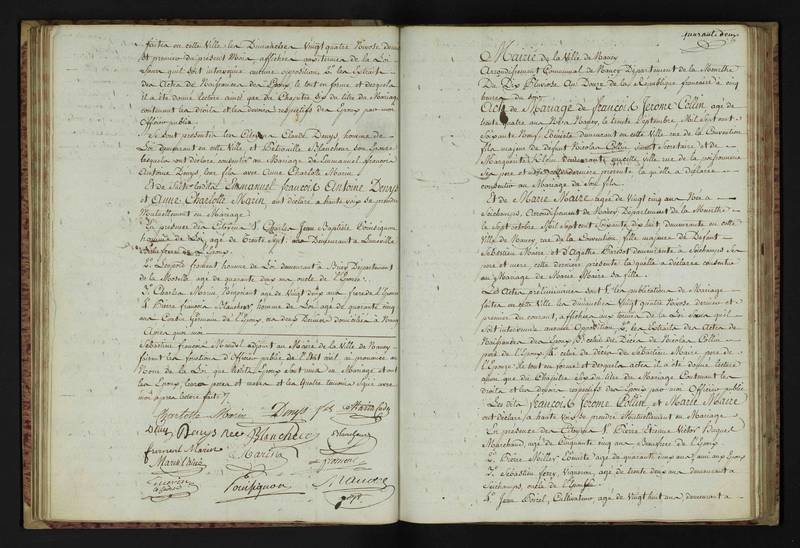 faites en cette Ville les Dimanches Vingt quatre Nivose dernier
et premier du present Mois, affichées aux termes de la Loi
Sans qu'il soit intervenu aucune opposition 2° les Extraits
des Actes de Naissances des Epoux le tout en forme et desquels
il a été donné lecture ainsi que du Chapitre Six du titre du Mariage
contenant les droits et les devoirs respectifs des Epoux par moi
Officier public
Se sont présentés les Citoyens Claude Denys, homme de
Loi demeurant en cette Ville et Blancheur son Epouse
lesquels ont déclaré consentir au Mariage d'Emmanuel françois
Antoine Denys leur fils avec Anne Charlotte Marin
Et de Suite lesdits Emmanuel françois Antoine Denys
et Anne Charlotte Marin ont déclaré à haute voix se prendre
Mutuellement en Mariage
En présence des Citoyens 1° Charles Jean Baptiste
homme de Loi, age de trente Sept ans Demeurant à Luneville
2° Leopold froment homme de Loi demeurant à Briey Département
de la Moselle agé de quarante deux ans oncle de l'Epouse
3° Charles Marin agé de Vingt deux ans frere de l'Epouse
4° Pierre françois Blancheur homme de Loi agé de quarante cinq
ans Cousin Germain de l'Epoux les deux derniers domiciliés à Nancy
Après quoi moi
Sebastien françois Mandel adjoint au Maire de la Ville de Nancy
faisant les fonctions d'Officier public de l'Etat civil ai prononcé au
Nom de la Loi que lesdits Epoux sont unis en Mariage et ont
les Epoux, leurs peres et meres et les quatre temoins signé avec
moi après lecture faite
Charlotte Marin Denys fils
Denys Blancheur
froment Marin
quarante deux
Mairie de la Ville de Nancy
Arrondissement Communal de Nancy Département de la Meurthe
Du Dix Pluviose An Douze de la République française à cinq
heures du soir
Acte de Mariage de françois Jerome Collin agé de
trente quatre ans Né à Nancy, le trente Septembre Mil Sept cent
Soixante Neuf domicilié demeurant en cette Ville rue de la Convention
fils majeur de défunt Nicolas Collin vivant Secretaire et de
Marguerite demeurante en cette Ville rue de la poissonnerie
Ses pere et mere cette derniere présente laquelle a déclaré
consentir au Mariage de Son fils
Et de Marie Maire agée de Vingt cinq ans Née à
Seichamps, Arrondissement de Nancy Département de la Meurthe
le Sept octobre Mil Sept cent Soixante dix huit demeurante en cette
Ville de Nancy rue de la Convention fille majeure de Defunt
Sebastien Maire et d'Agathe demeurante à Seichamps Ses
pere et mere cette derniere presente laquelle a déclaré consentir
au Mariage de Marie Maire sa fille
Les Actes préliminaires sont 1° les publications de Mariage
faites en cette Ville les dimanches Vingt quatre Nivose dernier et
premier du courant, affichées aux termes de la Loi Sans qu'il
Soit intervenu aucune Opposition 2° les Extraits des Actes de
Naissances des Epoux 3° celui de Décès de Nicolas Collin
pere de l'Epoux 4° celui de décès de Sebastien Maire pere de
l'Epouse le tout en forme et desquels actes il a été donné lecture
ainsi que du Chapitre Six du titre du Mariage Contenant les
droits et les devoirs respectifs des Epoux par moi Officier public
Les dits françois Jerome Collin et Marie Maire
ont déclaré à haute voix se prendre Mutuellement en Mariage
En présence des Citoyens 1° Pierre Etienne Victor
Marchand, agé de Cinquante cinq ans Beaufrere de l'Epoux
2° Pierre Miller agé de quarante deux ans ami aux Epoux
3° Sebastien ferry, Vigneron, agé de trente deux ans demeurant à
Seichamps, oncle de l'Epouse
4° Jean Cultivateur, agé de Vingt huit ans, demeurant à